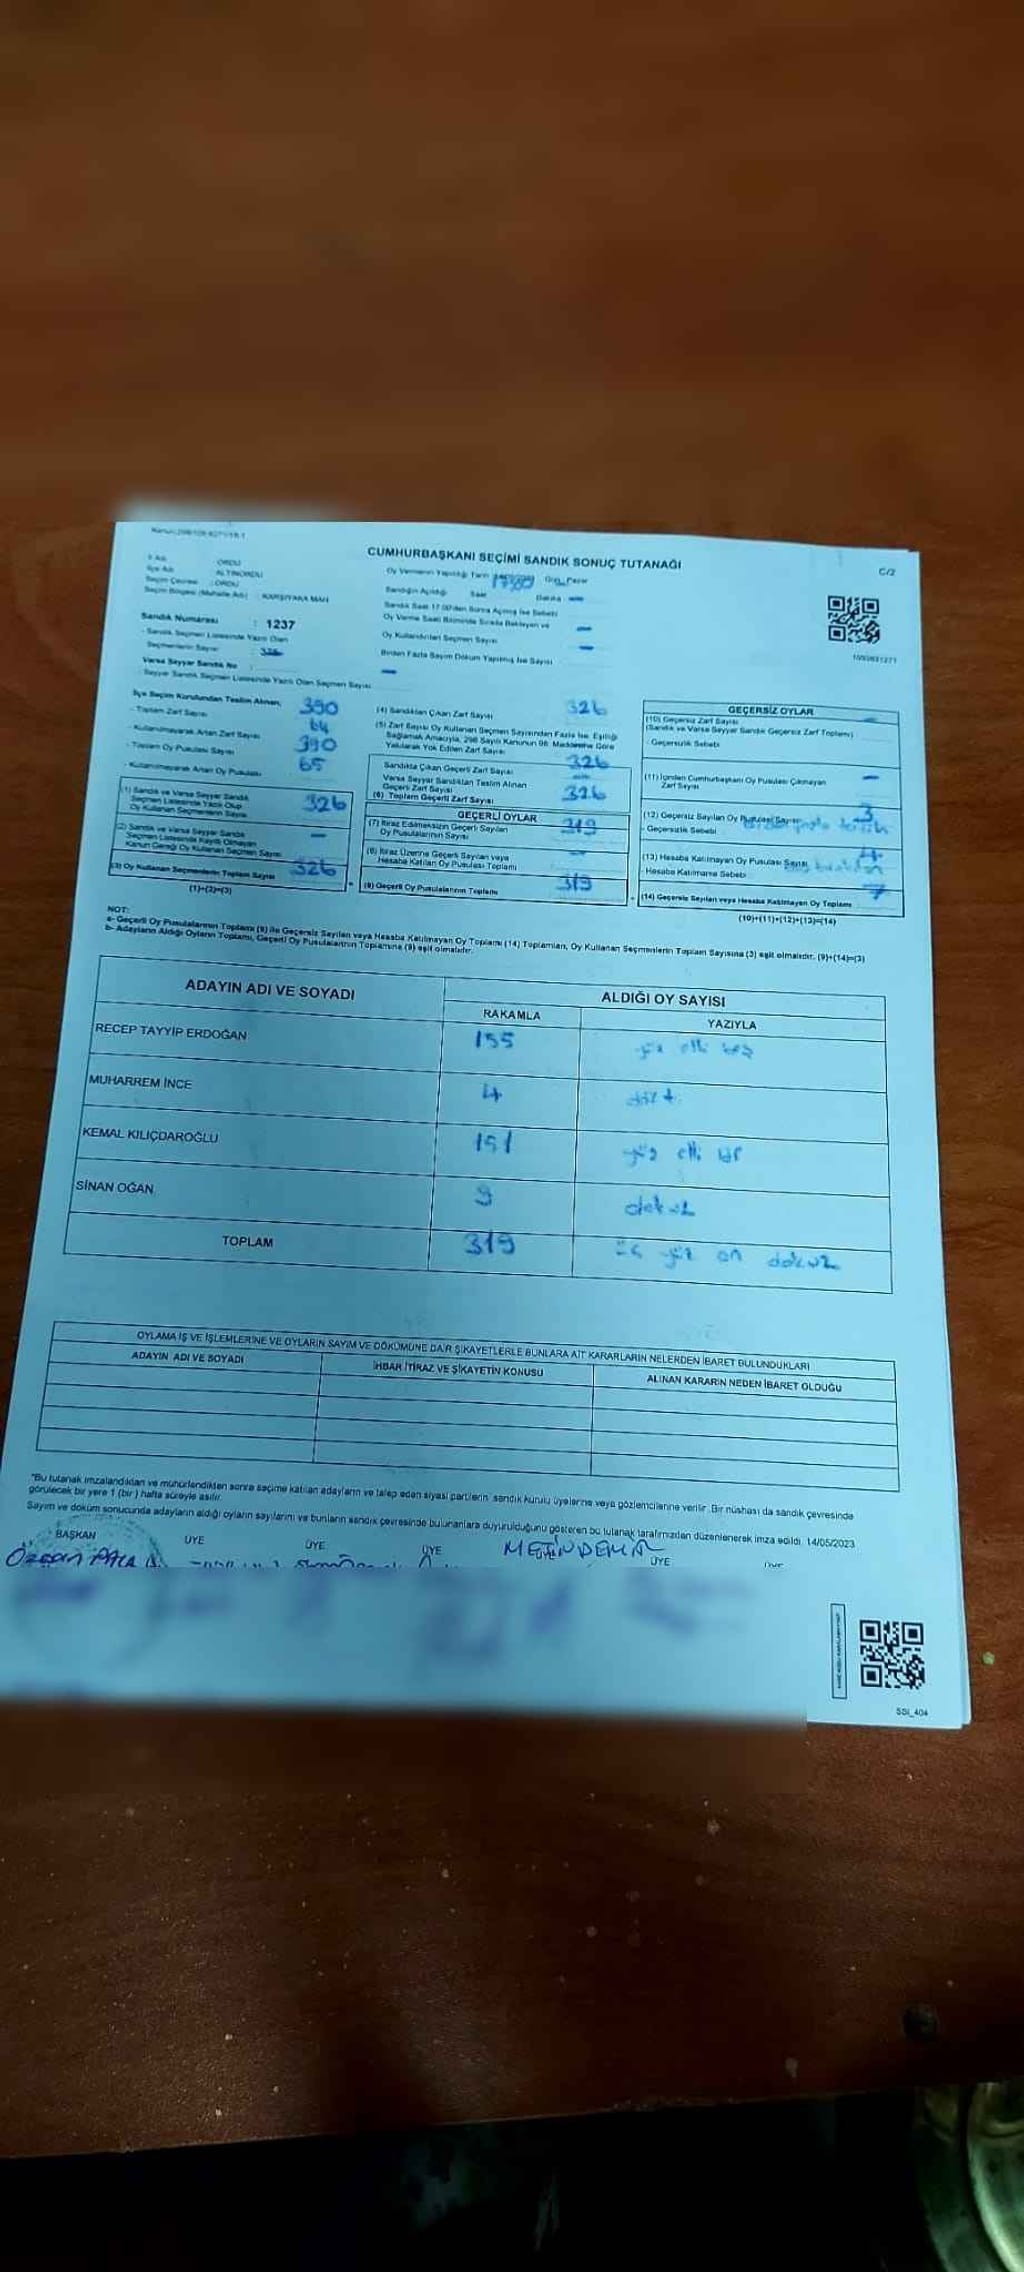 CUMHURBAŞKANI SEÇİMİ SANDIK SONUÇ TUTANAĞI
C/2
İl Adı : ORDU
İlçe Adı : ALTINORDU
Seçim Çevresi : ORDU
Seçim Bölgesi (Mahalle Adı) : KARŞIYAKA MAH
Oy Vermenin Yapıldığı Tarih Gün Pazar
Sandığın Açıldığı Saat 17:00 Dakika -
Sandık Saat 17.00'den Sonra Açılmış İse Sebebi
Oy Verme Saati Bitiminde Sırada Bekleyen ve -
Oy Kullandırılan Seçmen Sayısı -
Birden Fazla Sayım Döküm Yapılmış İse Sayısı
Sandık Numarası : 1237
- Sandık Seçmen Listesinde Yazılı Olan
Seçmenlerin Sayısı :
Varsa Seyyar Sandık No :
- Seyyar Sandık Seçmen Listesinde Yazılı Olan Seçmen Sayısı -
İlçe Seçim Kurulundan Teslim Alınan;
- Toplam Zarf Sayısı 390
- Kullanılmayarak Artan Zarf Sayısı 64
- Toplam Oy Pusulası Sayısı 390
- Kullanılmayarak Artan Oy Pusulası 65
(1) Sandık ve Varsa Seyyar Sandık
Seçmen Listesinde Yazılı Olup
Oy Kullanan Seçmenlerin Sayısı 326
(2) Sandık ve Varsa Seyyar Sandık
Seçmen Listesinde Kayıtlı Olmayan
Kanun Gereği Oy Kullanan Seçmen Sayısı -
(3) Oy Kullanan Seçmenlerin Toplam Sayısı 326
(1)+(2)=(3)
(4) Sandıktan Çıkan Zarf Sayısı 326
(5) Zarf Sayısı Oy Kullanan Seçmen Sayısından Fazla İse, Eşitliği
Sağlamak Amacıyla, 298 Sayılı Kanunun 98. Maddesine Göre
Yakılarak Yok Edilen Zarf Sayısı
Sandıkta Çıkan Geçerli Zarf Sayısı 326
Varsa Seyyar Sandıktan Teslim Alınan
Geçerli Zarf Sayısı -
(6) Toplam Geçerli Zarf Sayısı 326
GEÇERLİ OYLAR
(7) İtiraz Edilmeksizin Geçerli Sayılan
Oy Pusulalarının Sayısı 319
(8) İtiraz Üzerine Geçerli Sayılan veya
Hesaba Katılan Oy Pusulası Toplamı -
(9) Geçerli Oy Pusulalarının Toplamı 319
GEÇERSİZ OYLAR
(10) Geçersiz Zarf Sayısı -
(Sandık ve Varsa Seyyar Sandık Geçersiz Zarf Toplamı)
- Geçersizlik Sebebi
(11) İçinden Cumhurbaşkanı Oy Pusulası Çıkmayan
Zarf Sayısı -
(12) Geçersiz Sayılan Oy Pusulası Sayısı 3
- Geçersizlik Sebebi
(13) Hesaba Katılmayan Oy Pusulası Sayısı 4
- Hesaba Katılmama Sebebi
(14) Geçersiz Sayılan veya Hesaba Katılmayan Oy Toplamı 7
(10)+(11)+(12)+(13)=(14)
NOT:
a- Geçerli Oy Pusulalarının Toplamı (9) ile Geçersiz Sayılan veya Hesaba Katılmayan Oy Toplamı (14) Toplamları, Oy Kullanan Seçmenlerin Toplam Sayısına (3) eşit olmalıdır. (9)+(14)=(3)
b- Adayların Aldığı Oyların Toplamı, Geçerli Oy Pusulalarının Toplamına (9) eşit olmalıdır.
ADAYIN ADI VE SOYADI ALDIĞI OY SAYISI
RAKAMLA YAZIYLA
RECEP TAYYİP ERDOĞAN 155 yüz elli beş
MUHARREM İNCE 4 dört
KEMAL KILIÇDAROĞLU 151 yüz elli bir
SİNAN OĞAN 9 dokuz
TOPLAM 319 üç yüz on dokuz
OYLAMA İŞ VE İŞLEMLERİNE VE OYLARIN SAYIM VE DÖKÜMÜNE DAİR ŞİKAYETLERLE BUNLARA AİT KARARLARIN NELERDEN İBARET BULUNDUKLARI
ADAYIN ADI VE SOYADI İHBAR İTİRAZ VE ŞİKAYETİN KONUSU ALINAN KARARIN NEDEN İBARET OLDUĞU
"Bu tutanak imzalandıktan ve mühürlendikten sonra seçime katılan adayların ve talep eden siyasi partilerin sandık kurulu üyelerine veya gözlemcilerine verilir. Bir nüshası da sandık çevresinde
görülecek bir yere 1 (bir) hafta süreyle asılır.
Sayım ve döküm sonucunda adayların aldığı oyların sayılarını ve bunların sandık çevresinde bulunanlara duyurulduğunu gösteren bu tutanak tarafımızdan düzenlenerek imza edildi. 14/05/2023
BAŞKAN ÜYE ÜYE ÜYE ÜYE ÜYE ÜYE
METİN DEMİR
SSI_404